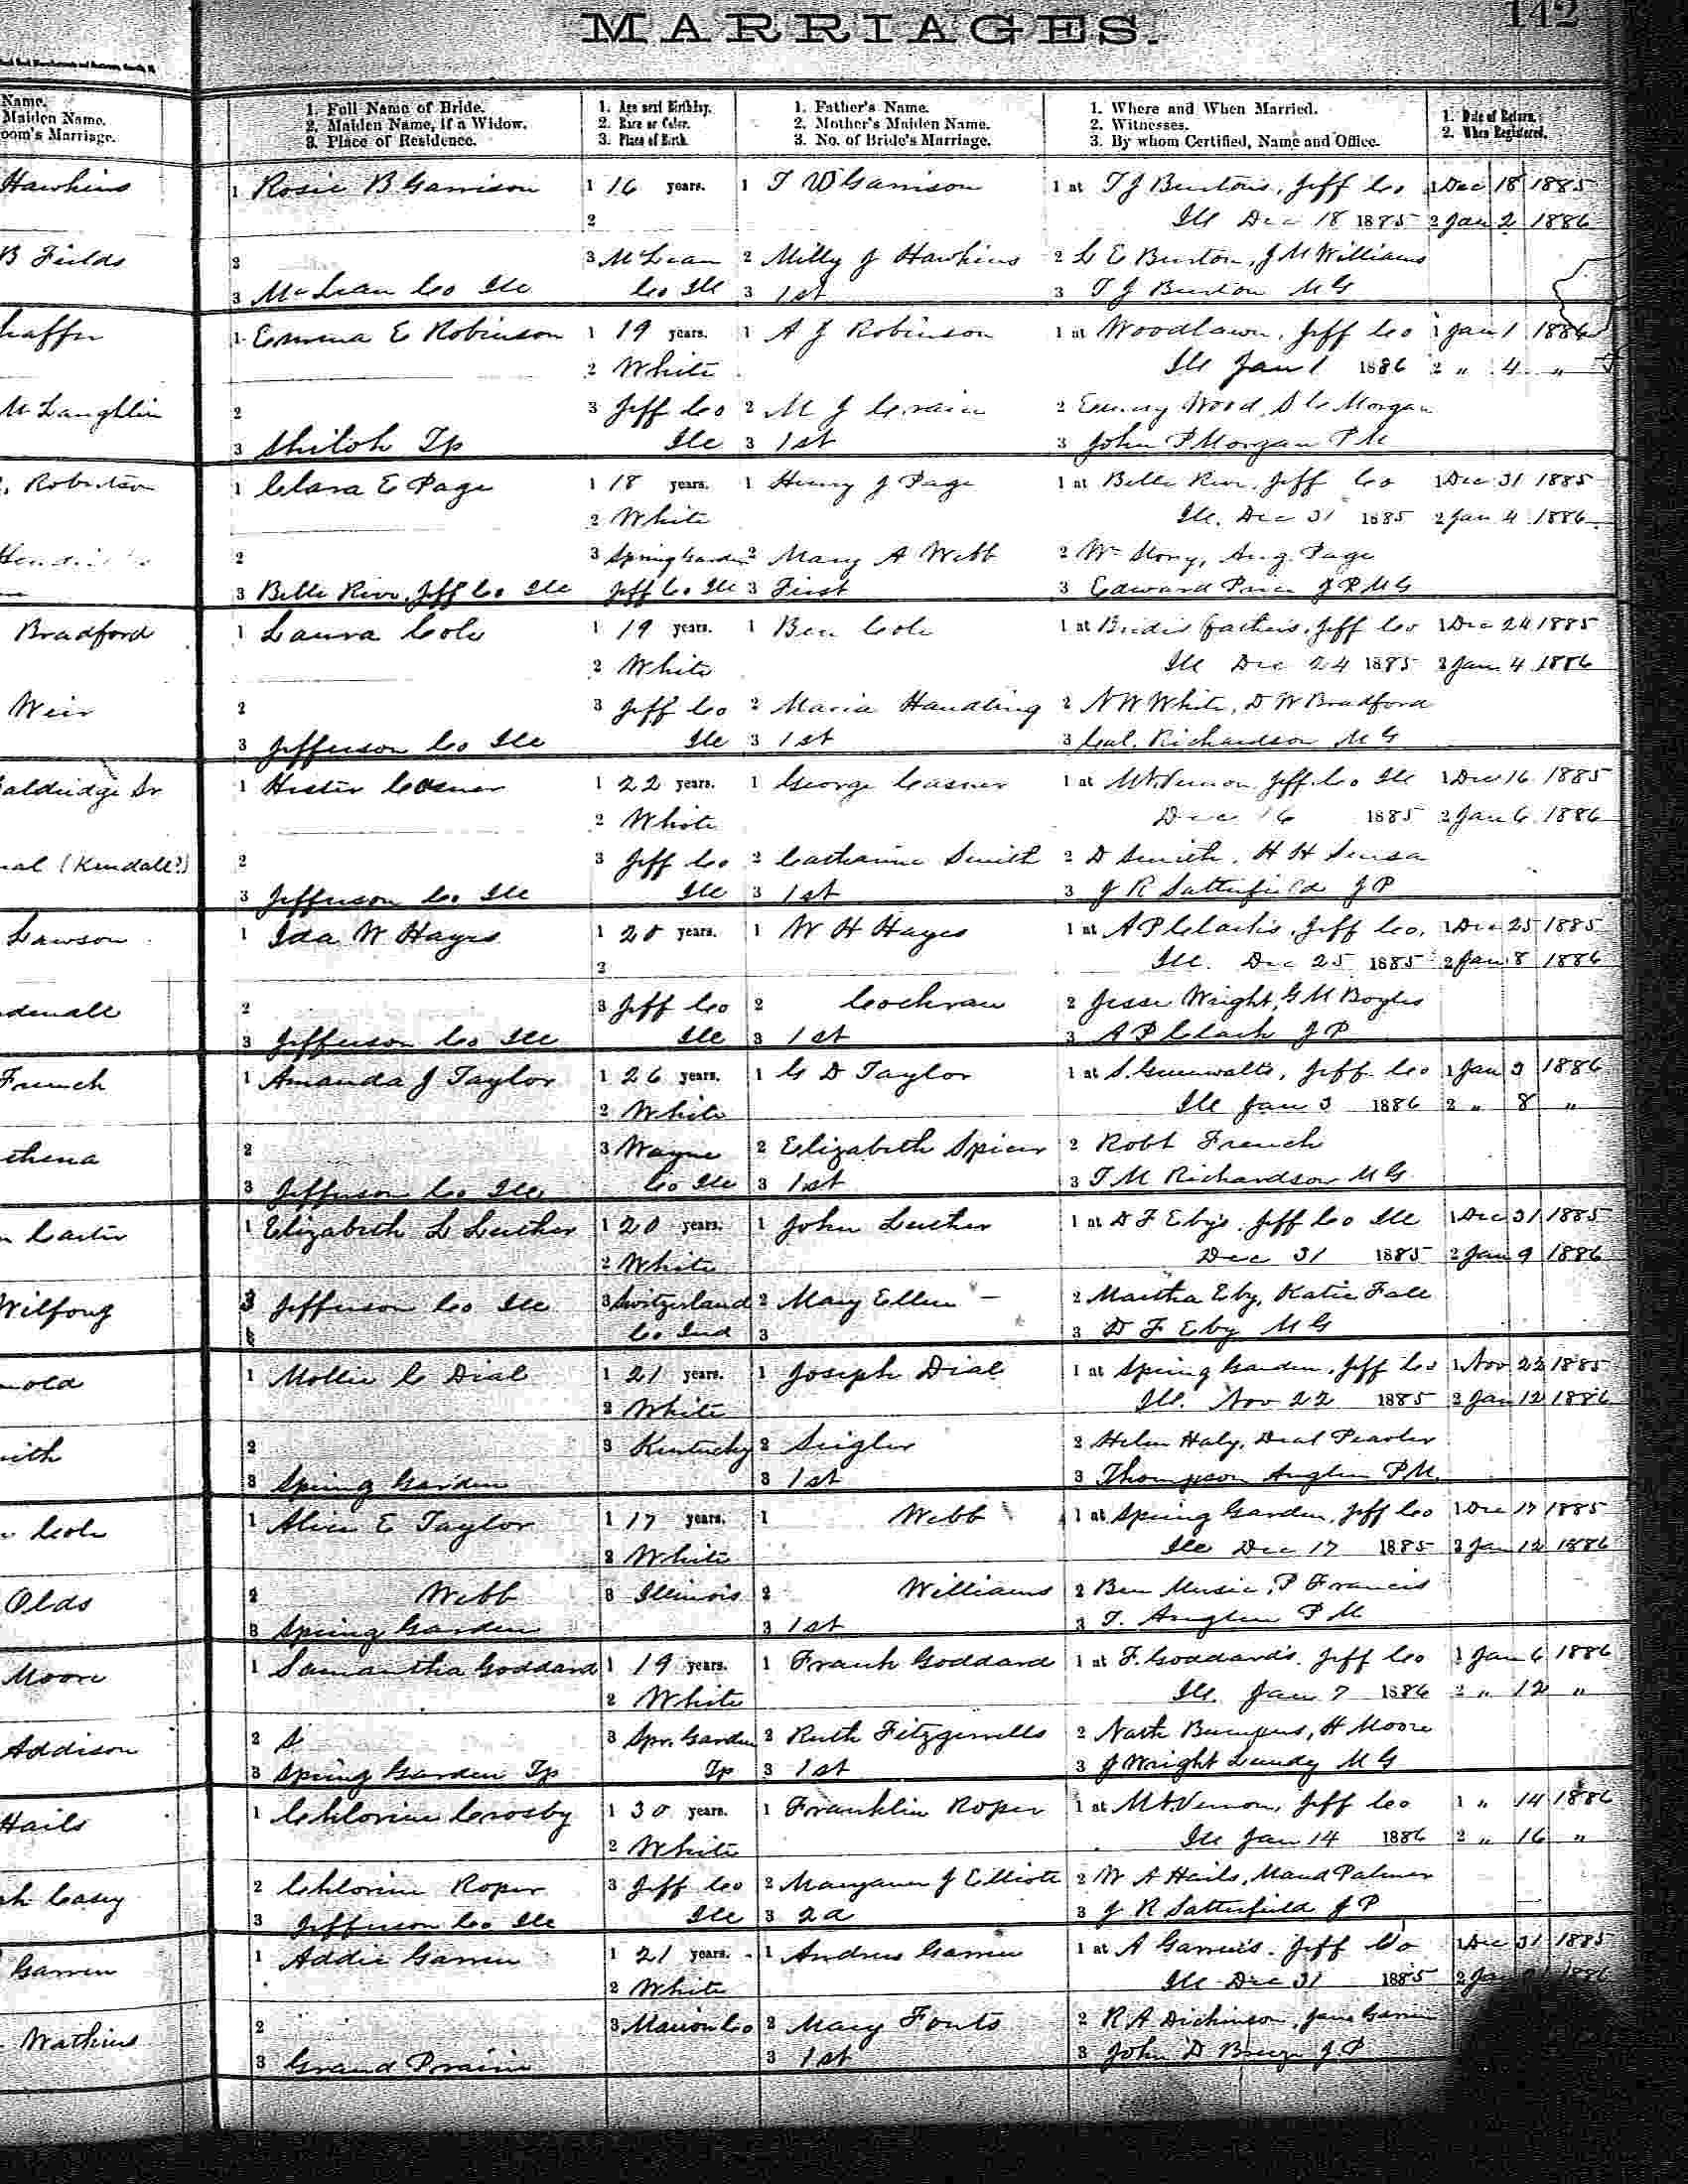 MARRIAGES.
142
Name.
Maiden Name.
oom's Marriage.
1. Full Name of Bride.
2. Maiden Name, if a Widow.
3. Place of Residence.
1. Age next Birthday.
2. Race or Color.
3. Place of Birth.
1. Father's Name.
2. Mother's Maiden Name.
3. No. of Bride's Marriage.
1. Where and When Married.
2. Witnesses.
3. By whom Certified, Name and Office.
1. Date of Return.
2. When Registered.
Hawkins 1 Rosie B Garrison 1 16 years. 1 T W Garrison 1 at T J Burton's, Jeff Co 1 Dec 18 1885
2 Ill Dec 18 1885 2 Jan 2 1886
B Fields 2 3 McLean 2 Milly J Hawkins 2 L E Burton, J M Williams
3 McLean Co Ill Co Ill 3 1st 3 T J Burton M G
haffer 1 Emma E Robinson 1 19 years. 1 A J Robinson 1 at Woodlawn, Jeff Co 1 Jan 1 1886
2 White Ill Jan 1 1886 2 " 4 "
McLaughlin 2 3 Jeff Co 2 M J Crain 2 Emery Wood, S C Morgan
3 Shiloh Tp Ill 3 1st 3 John P Morgan P M
Robertson 1 Clara E Page 1 18 years. 1 Henry J Page 1 at Belle River, Jeff Co 1 Dec 31 1885
2 White Ill. Dec 31 1885 2 Jan 4 1886
2 3 Spring Garden 2 Mary A Webb 2 Wm Story, Aug. Page
3 Belle River, Jeff Co Ill Jeff Co Ill 3 First 3 Edward Price J P M G
Bradford 1 Laura Cole 1 19 years. 1 Ben Cole 1 at Brides fathers, Jeff Co 1 Dec 24 1885
2 White Ill Dec 24 1885 2 Jan 4 1886
Weir 2 3 Jeff Co 2 Maria Handling 2 N W White, D W Bradford
3 Jefferson Co Ill Ill 3 1st 3 Cal. Richardson M G
aldridge Sr 1 Hester Casner 1 22 years. 1 George Casner 1 at Mt Vernon Jeff. Co Ill 1 Dec 16 1885
2 White Dec 16 1885 2 Jan 6 1886
nal (Kendall?) 2 3 Jeff Co 2 Catharine Smith 2 D Smith, H H
3 Jefferson Co Ill Ill 3 1st 3 J R Satterfield J P
Lawson 1 Ida W Hayes 1 20 years. 1 W H Hayes 1 at A P Clark's, Jeff Co. 1 Dec 25 1885
2 Ill. Dec 25 1885 2 Jan 8 1886
denall 2 3 Jeff Co 2 Cochran 2 Jesse Wright, G M Boyles
3 Jefferson Co Ill Ill 3 1st 3 A P Clark J P
French 1 Amanda J Taylor 1 26 years. 1 G D Taylor 1 at S. Greenwalts, Jeff Co 1 Jan 3 1886
2 White Ill Jan 3 1886 2 " 8 "
thena 2 3 Wayne 2 Elizabeth Spicer 2 Robt French
3 Jefferson Co Ill Co Ill 3 1st 3 T M Richardson M G
Carter 1 Elizabeth L Luther 1 20 years. 1 John Luther 1 at D F Eby's, Jeff Co Ill 1 Dec 31 1885
2 White Dec 31 1885 2 Jan 9 1886
Wilfong 3 Jefferson Co Ill 3 Switzerland 2 Mary Ellen — 2 Martha Eby, Katie Fall
Co Ind 3 3 D F Eby M G
nold 1 Mollie C Dial 1 21 years. 1 Joseph Dial 1 at Spring Garden, Jeff Co 1 Nov 22 1885
2 White Ill. Nov 22 1885 2 Jan 12 1886
ith 2 3 Kentucky 2 Seigler 2 Helen Haly, Deal
3 Spring Garden 3 1st 3 Thompson Anglen P M.
Cole 1 Alice E Taylor 1 17 years. 1 Webb 1 at Spring Garden, Jeff Co 1 Dec 17 1885
2 White Ill Dec 17 1885 2 Jan 12 1886
Olds 2 Webb 3 Illinois 2 Williams 2 Ben Music, P Francis
3 Spring Garden 3 1st 3 T. Anglen P M
Moore 1 Samantha Goddard 1 19 years. 1 Frank Goddard 1 at F. Goddard's, Jeff Co 1 Jan 6 1886
2 White Ill. Jan 7 1886 2 " 12 "
Addison 2 S 3 Spr. Garden 2 Ruth Fitzgerrells 2 Nath Bumpus, H Moore
3 Spring Garden Tp Tp 3 1st 3 J Wright Lundy M G
Hails 1 Chlorine Crosby 1 30 years. 1 Franklin Roper 1 at Mt. Vernon, Jeff Co 1 " 14 1886
2 White Ill Jan 14 1886 2 " 16 "
Casey 2 Chlorine Roper 3 Jeff Co 2 Maryann J Elliott 2 W A Hails, Maud Palmer
3 Jefferson Co Ill Ill 3 2d 3 J R Satterfield J P
Garren 1 Addie Garren 1 21 years. 1 Andrew Garren 1 at A Garren's, Jeff Co 1 Dec 31 1885
2 White Ill Dec 31 1885 2 Jan 1886
Watkins 2 3 Marion Co 2 Mary Fouts 2 R A Dickinson, Jane Garren
3 Grand Prairie 3 1st 3 John D Breeze J P